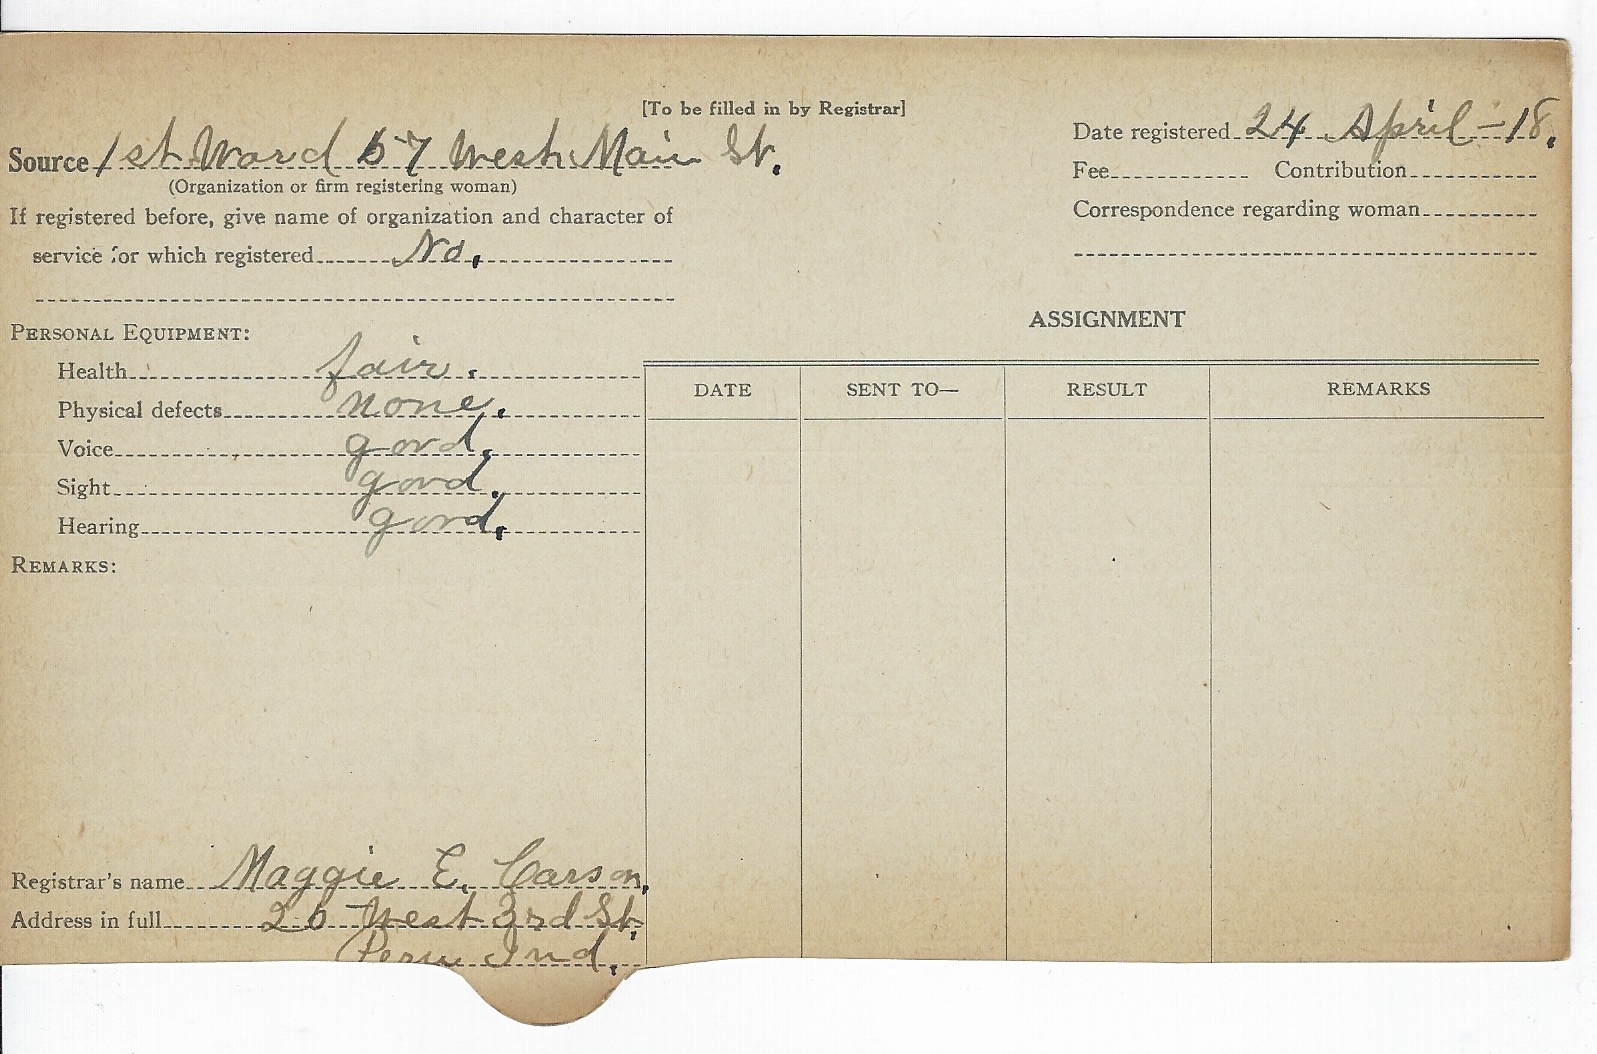 [To be filled in by Registrar]
Source 1st Ward 57 West Main St.
(Organization or firm registering woman)
If registered before, give name of organization and character of
service for which registered No.
Date registered 24 April - 18.
Fee Contribution
Correspondence regarding woman
PERSONAL EQUIPMENT:
Health fair.
Physical defects none.
Voice good.
Sight good.
Hearing good.
REMARKS:
ASSIGNMENT
DATE SENT TO— RESULT REMARKS
Registrar's name Maggie E. Carson,
Address in full 26 West 3rd St.
Peru Ind.